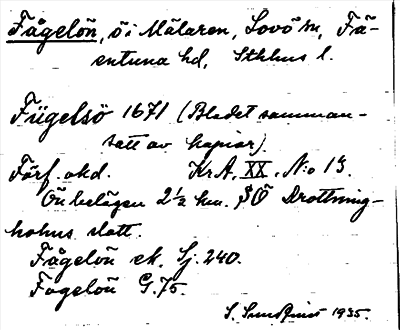 Fågelön, ö i Mälaren, Lovö sn, Fä-
entuna hd, Sthlms l.
Fügelsö 1671 (Bladet samman-
satt av kopior).
Förf. okd. Kr A, XX, N:o 13.
Ön belägen 2½ km. SÖ Drottning-
holms slott.
Fågelön ek. Sj. 240.
Fogelön G. 75.
S. 1935.